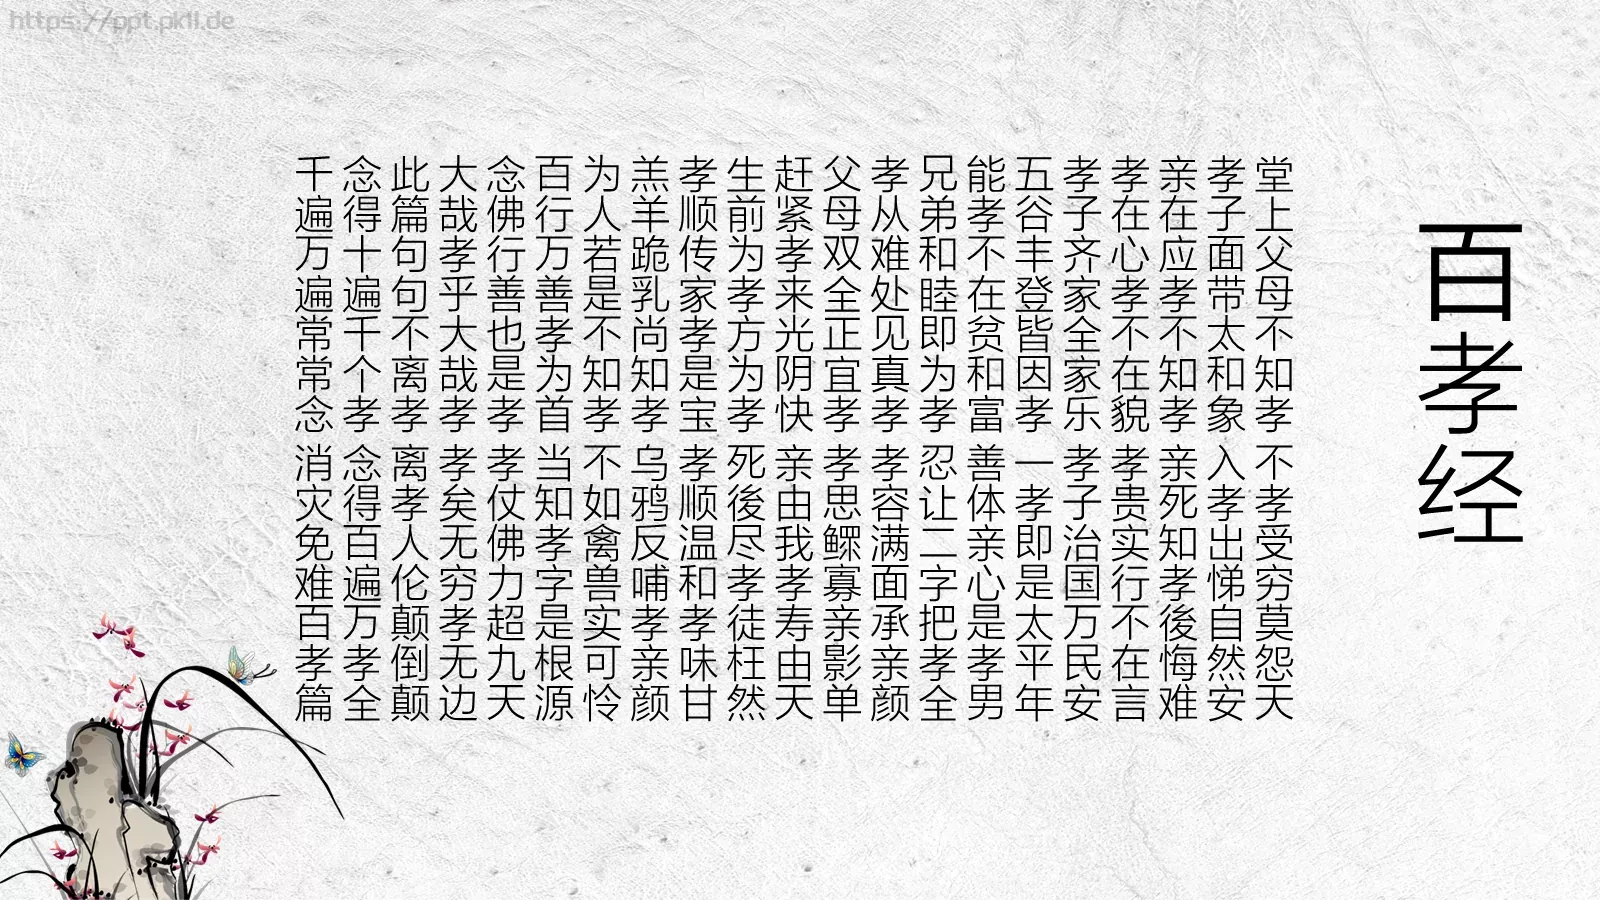 https://ppt.pk11.de
百孝经
堂上父母不知孝 不孝受穷莫怨天
孝子面带太和象 入孝出悌自然安
亲在应孝不知孝 亲死知孝後悔难
孝在心孝不在貌 孝贵实行不在言
孝子齐家全家乐 孝子治国万民安
五谷丰登皆因孝 一孝即是太平年
能孝不在贫和富 善体亲心是孝男
兄弟和睦即为孝 忍让二字把孝全
孝从难处见真孝 孝容满面承亲颜
父母双全正宜孝 孝思鳏寡亲影单
赶紧孝来光阴快 亲由我孝寿由天
生前为孝方为孝 死後尽孝徒枉然
孝顺传家孝是宝 孝顺温和孝味甘
羔羊跪乳尚知孝 乌鸦反哺孝亲颜
为人若是不知孝 不如禽兽实可怜
百行万善孝为首 当知孝字是根源
念佛行善也是孝 孝仗佛力超九天
大哉孝乎大哉孝 孝矣无穷孝无边
此篇句句不离孝 离孝人伦颠倒颠
念得十遍千个孝 念得百遍万孝全
千遍万遍常常念 消灾免难百孝篇